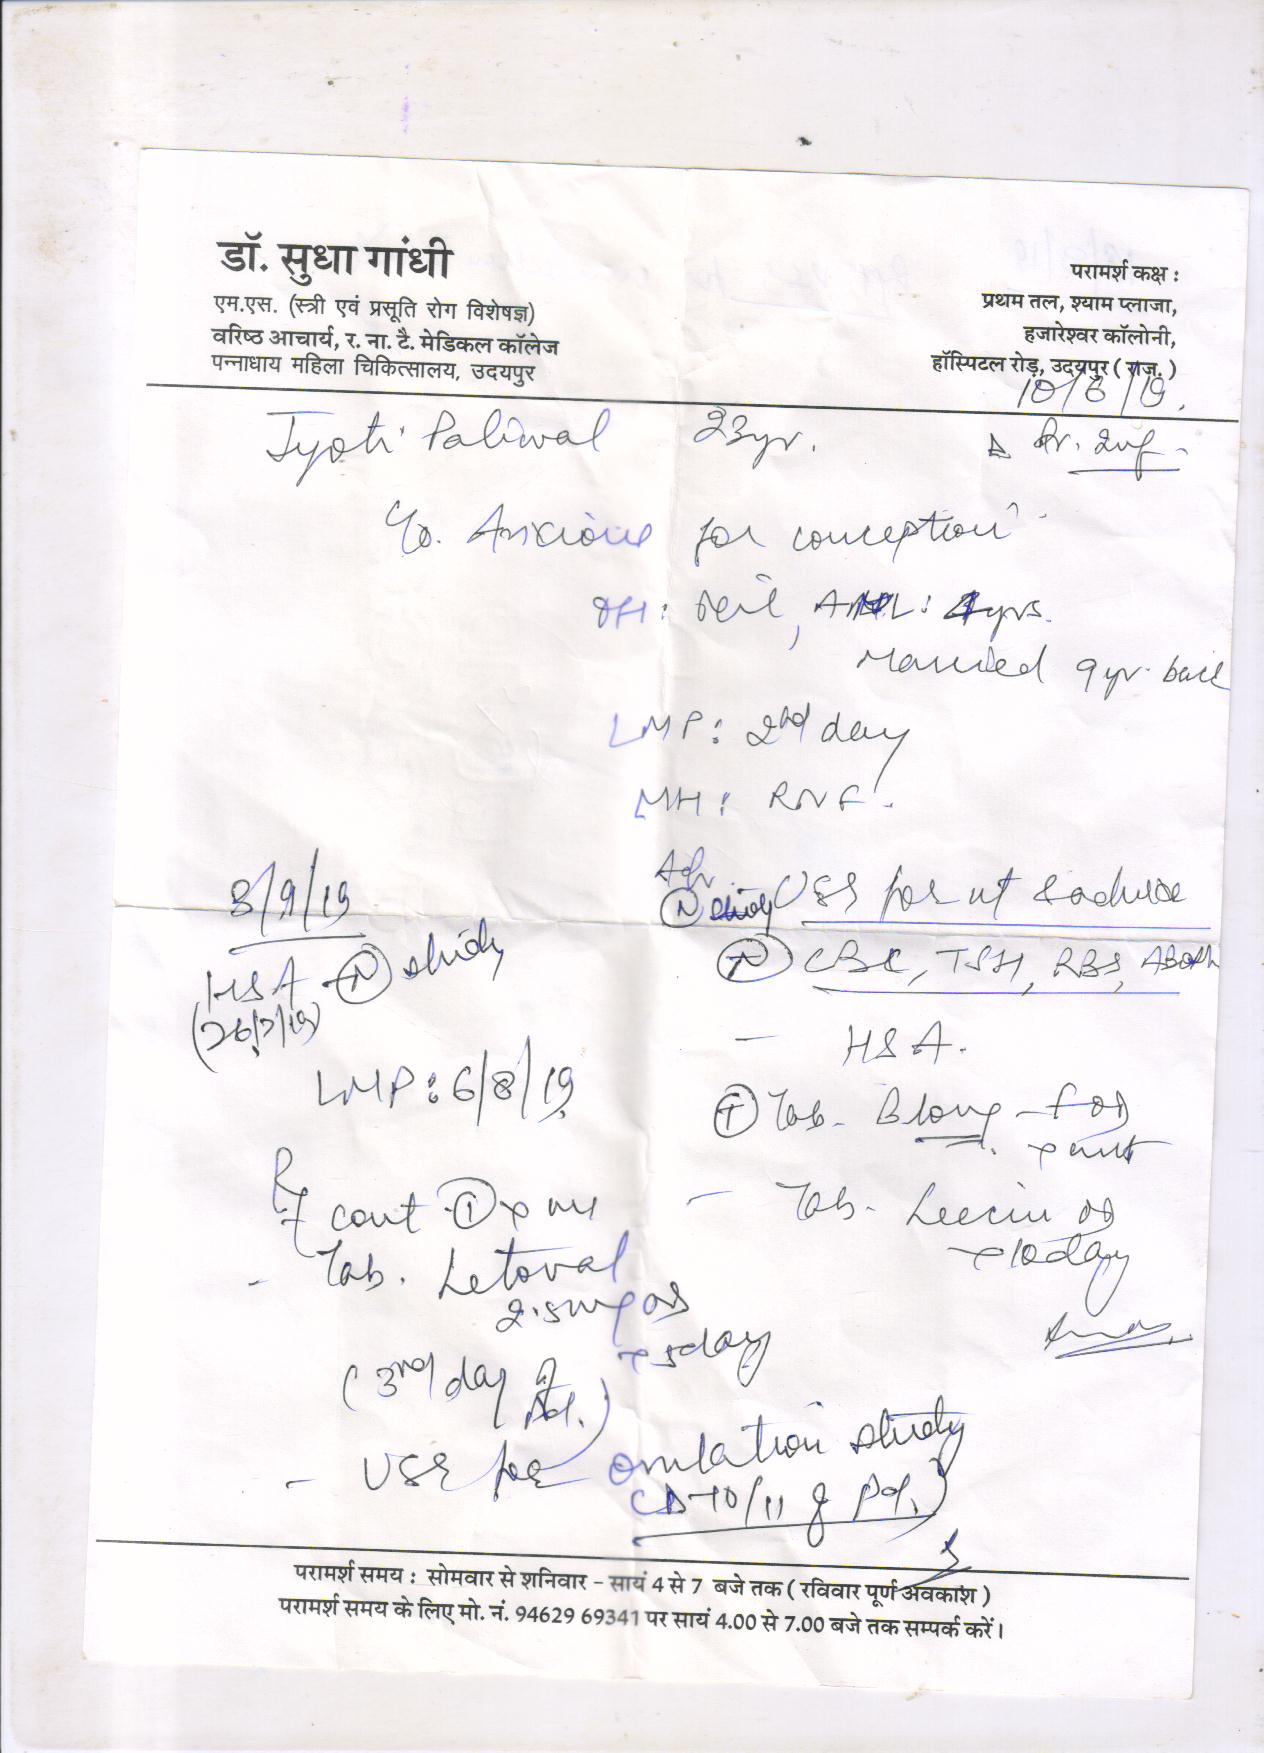 डॉ. सुधा गांधी
एम.एस. (स्त्री एवं प्रसूति रोग विशेषज्ञ)
वरिष्ठ आचार्य, र. ना. टै. मेडिकल कॉलेज
पन्नाधाय महिला चिकित्सालय, उदयपुर
परामर्श कक्ष :
प्रथम तल, श्याम प्लाजा,
हजारेश्वर कॉलोनी,
हॉस्पिटल रोड़, उदयपुर ( राज. )
10/8/19.
Jyoti Paliwal 23yr. Pr. Inf.
C/o. Anxious for conception
OH: Nil, AML: 4yrs.
Married 9yr. back
LMP: 2nd day
MH: RNF.
Adv.
(N) study USS for ut & adnexae
(N) CBC, TSH, RBS, ABORh
- HSA.
(1) Tab. Blong-f OD
x cont
- Tab. Leecin OD
x 10day
3/9/19
HSA - (N) study
LMP: 6/8/19
Rx cont (1) x
- Tab. Letoval
2.5mg OD
x 5day
(3rd day of Pd.)
- USS for ovulation study
(D-10/11 of Pd.)
परामर्श समय : सोमवार से शनिवार – सायं 4 से 7 बजे तक ( रविवार पूर्ण अवकाश )
परामर्श समय के लिए मो. नं. 94629 69341 पर सायं 4.00 से 7.00 बजे तक सम्पर्क करें।